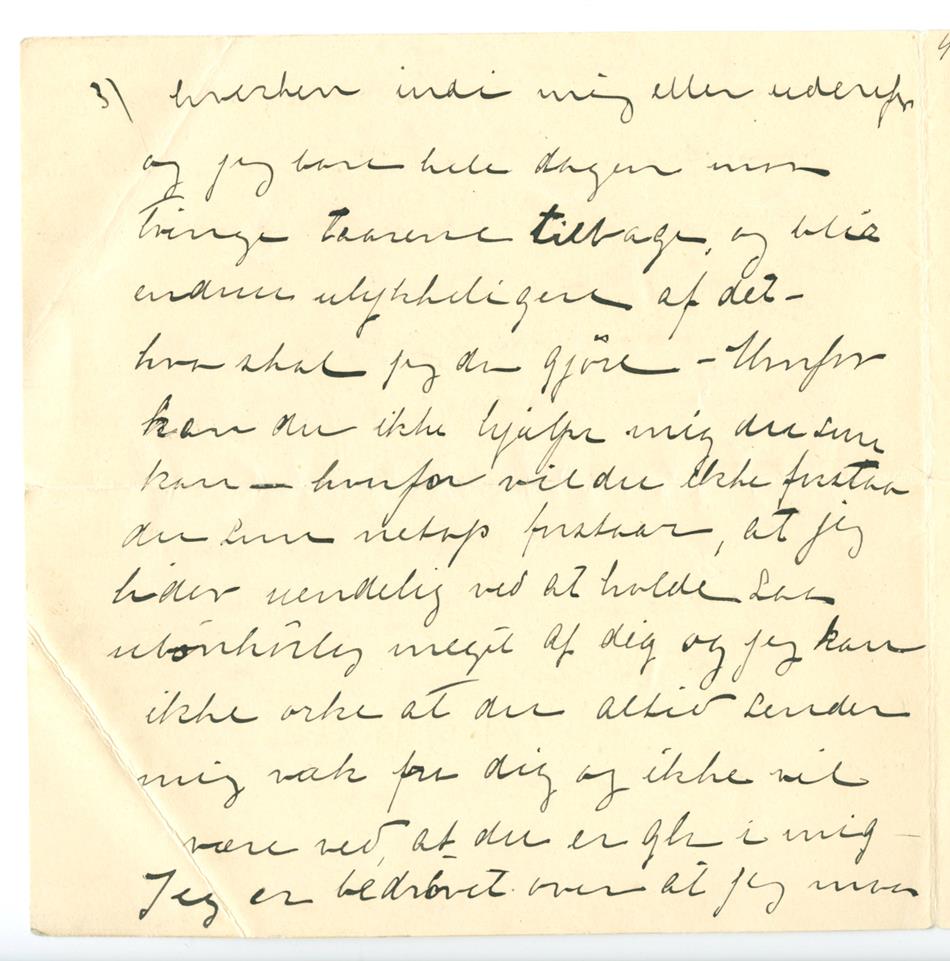 3) hverken indi mig eller udenfor
og jeg bare hele dagen maa
tvinge taarene tilbage, og blie
endnu ulykkeligere af det –
hva skal jeg da gjöre – Hvorfor
kan du ikke hjælpe mig du som
kan – hvorfor vil du ikke forstaa
du som netop forstaar, at jeg
lider uendelig ved at holde saa
ubönhörlig meget af dig og jeg kan
ikke orke at du altid sender
mig væk fra dig og ikke vil
være ved, at du er gla i mig –
Jeg er bedrövet over at jeg maa